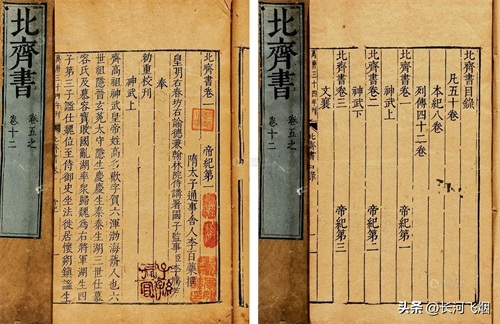 北齊書
卷五之
卷十二
北齊書卷一 帝紀第一
隋太子通事舍人李百藥撰
皇明右春坊右諭德兼翰林院侍講署國子監事臣李
奉
勅重校刊
神武上
齊高祖神武皇帝姓高名歡字賀六渾渤海蓨人也六
世祖隱晉玄菟太守隱生慶慶生泰泰生湖三世仕慕
容氏及慕容寶敗國亂湖率衆歸魏為右將軍湖生四
子第三子謐仕魏位至侍御史坐法徙居懷朔鎮謐生
北齊書
卷五之
卷十二
北齊書目錄
凡五十卷
本紀八卷
列傳四十二卷
北齊書卷一 帝紀第一
神武上
北齊書卷二 帝紀第二
神武下
北齊書卷三 帝紀第三
文襄
萬曆三十四年刊
北齊書目錄
头条 @长河飞烟